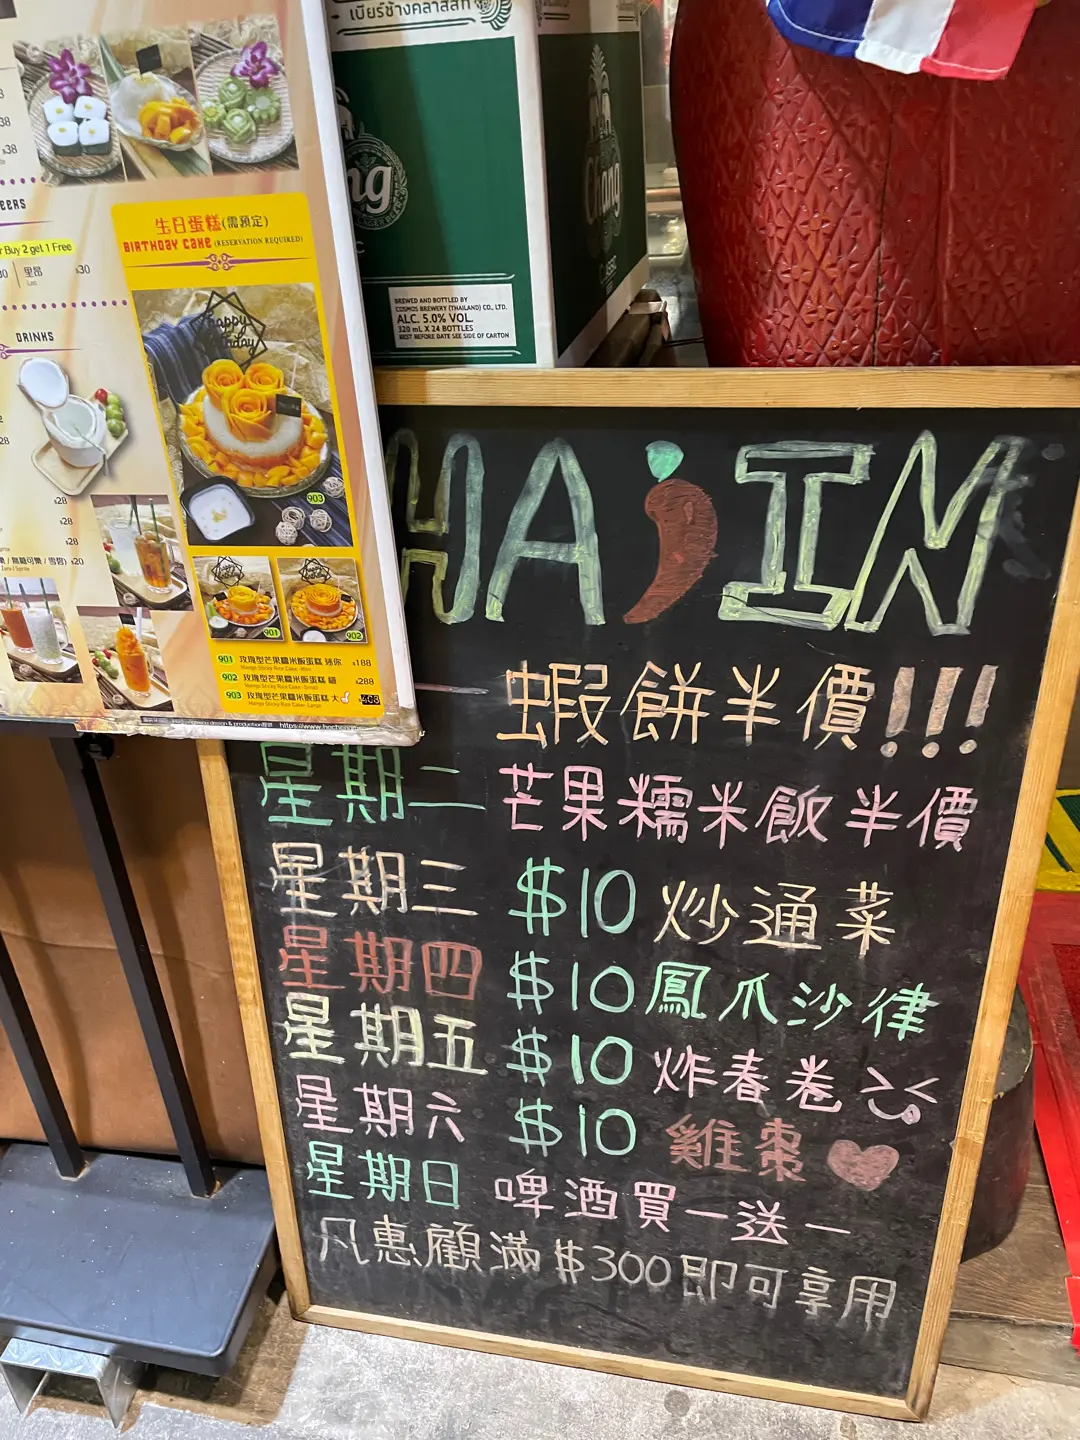 เบียร์ช้างคลาสสิก
Chang
Classic
BREWED AND BOTTLED BY
COSMOS BREWERY (THAILAND) CO., LTD.
ALC. 5.0% VOL.
320 mL X 24 BOTTLES
BEST BEFORE DATE SEE SIDE OF CARTON
38
$38
EERS
Buy 2 get 1 Free
30 | 里昂 $30
Lao
DRINKS
$28
$28
$28
/ 無糖可樂 / 雪碧) $20
Zero / Sprite
生日蛋糕(需預定)
BIRTHDAY CAKE (RESERVATION REQUIRED)
happy
birthday
903
901
902
901 玫瑰型芒果糯米飯蛋糕 迷你 $188
Mango Sticky Rice Cake -Mini
902 玫瑰型芒果糯米飯蛋糕 細 $288
Mango Sticky Rice Cake -Small
903 玫瑰型芒果糯米飯蛋糕 大
Mango Sticky Rice Cake -Large
HA IN
一 蝦餅半價!!!
星期二 芒果糯米飯半價
星期三 $10 炒通菜
星期四 $10 鳳爪沙律
星期五 $10 炸春卷
星期六 $10 雞棗
星期日 啤酒買一送一
凡惠顧滿$300即可享用